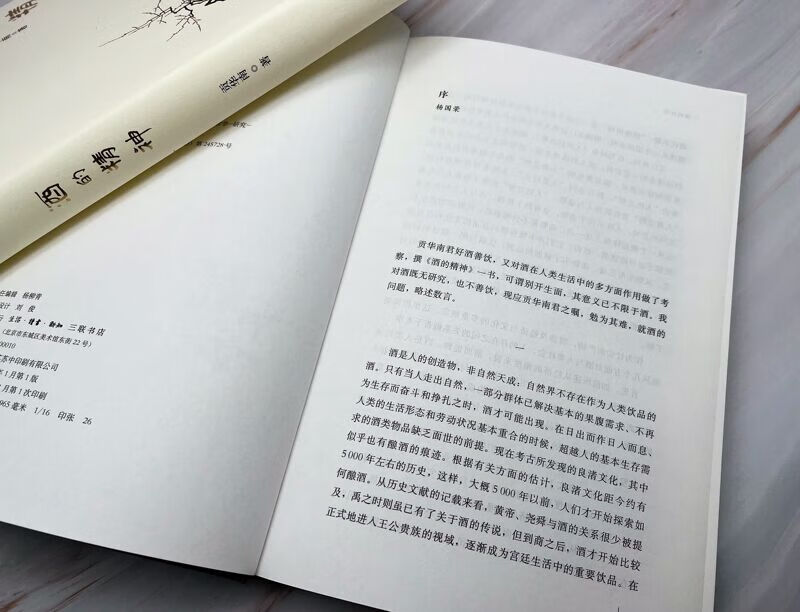 酒的精神
贡华南 著
研究
第 245728 号
任编辑 杨柳青
设计 刘俊
行 生活·讀書·新知 三联书店
(北京市东城区美术馆东街 22 号)
00010
苏中印刷有限公司
年 1 月第 1 版
月第 1 次印刷
965 毫米 1/16 印张 26
序
杨国荣
贡华南君好酒善饮，又对酒在人类生活中的多方面作用做了考
察，撰《酒的精神》一书，可谓别开生面，其意义已不限于酒。我
对酒既无研究，也不善饮，现应贡华南君之嘱，勉为其难，就酒的
问题，略述数言。
一
酒是人的创造物，非自然天成：自然界不存在作为人类饮品的
酒。只有当人走出自然，一部分群体已解决基本的果腹需求、不再
为生存而奋斗和挣扎之时，酒才可能出现。在日出而作日入而息、
人类的生活形态和劳动状况基本重合的时候，超越人的基本生存需
求的酒类物品缺乏面世的前提。现在考古所发现的良渚文化，其中
似乎也有酿酒的痕迹。根据有关方面的估计，良渚文化距今约有
5 000 年左右的历史，这样，大概 5 000 年以前，人们才开始探索如
何酿酒。从历史文献的记载来看，黄帝、尧舜与酒的关系很少被提
及，禹之时则虽已有了关于酒的传说，但到商之后，酒才开始比较
正式地进入王公贵族的视域，逐渐成为宫廷生活中的重要饮品。在